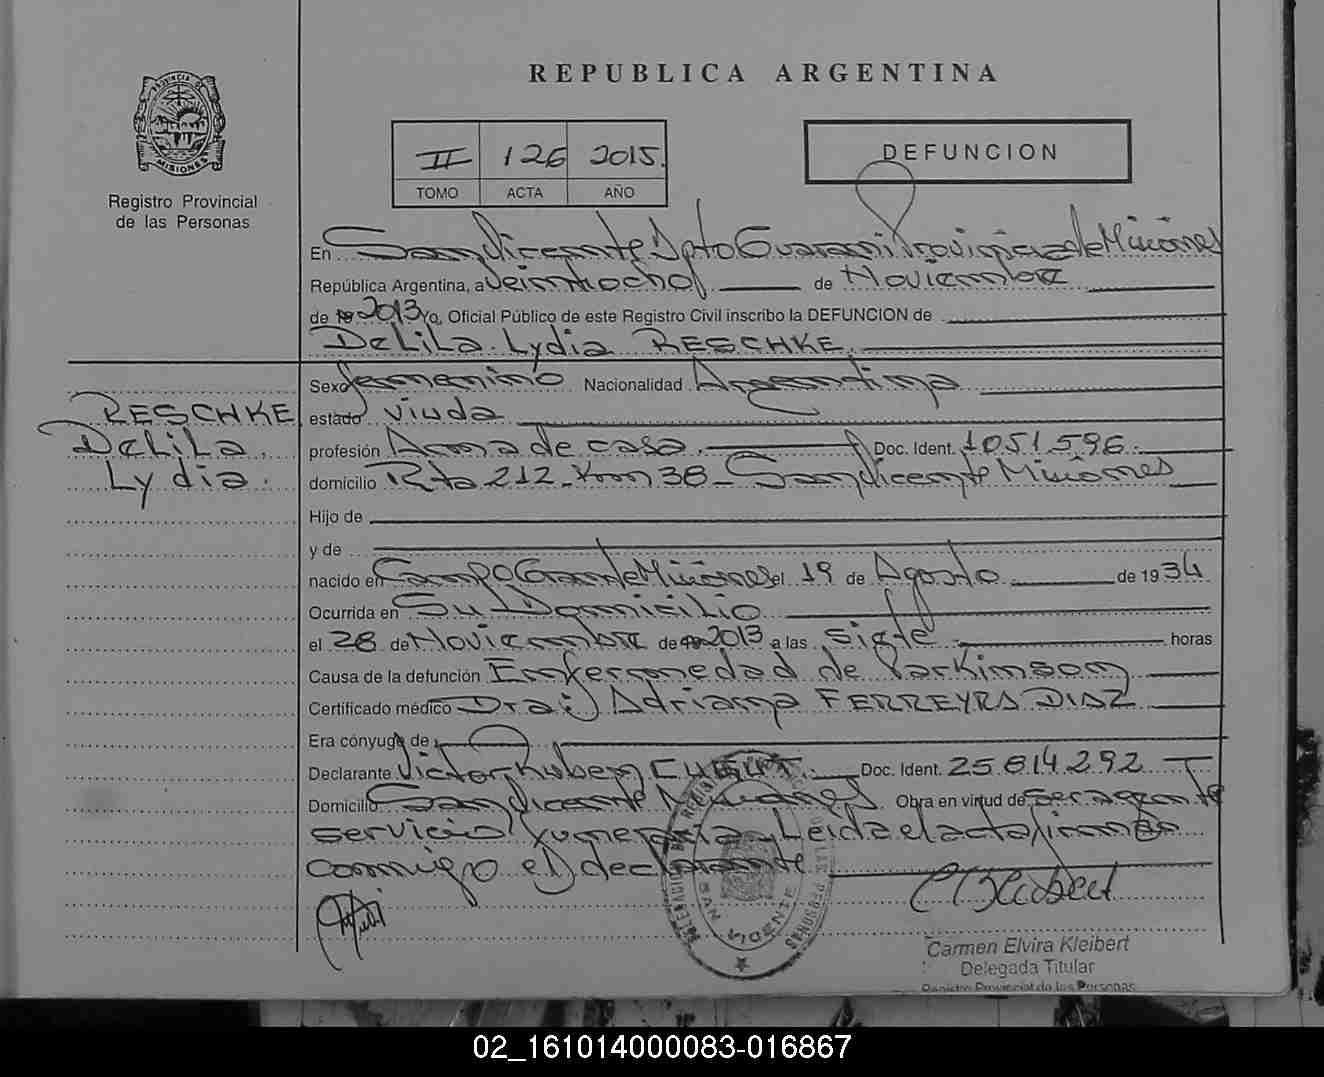 PROVINCIA D
MISIONES
Registro Provincial
de las Personas
REPUBLICA ARGENTINA
II 126 2015.
TOMO ACTA AÑO
DEFUNCION
En San Vicente Dpto Guarani Provincia de Misiones
República Argentina, a veintiocho de Noviembre
de 2013 Yo, Oficial Público de este Registro Civil inscribo la DEFUNCION de
DeLiLa Lydia RESCHKE
Sexo femenino Nacionalidad Argentina
RESCHKE
DeLiLa
Lydia.
estado viuda
profesión Ama de casa. Doc. Ident. 1051596.
domicilio Rta 212 - Km 38 - San Vicente Misiones
Hijo de
y de
nacido en Campo Grande Misiones el 19 de Agosto de 1934
Ocurrida en Su Domicilio
el 28 de Noviembre de 2013 a las siete horas
Causa de la defunción Enfermedad de Parkinson
Certificado médico Dra; Adriana FERREYRA DIAZ
Era cónyuge de
Declarante Victor Ruben Doc. Ident. 25614292
Domicilio San Vicente Misiones Obra en virtud de ser agente
servicio funeraria Leida el acta firma
conmigo el declarante
SAN VICENTE
Carmen Elvira Kleibert
Delegada Titular
Registro Provincial de las Personas
02_161014000083-016867